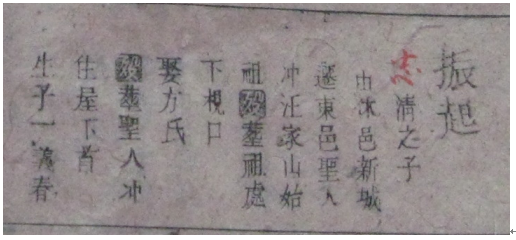 振起
志清之子
由本邑新城
遷東邑聖人
冲汪家山始
祖歿葬祖處
下梘口
娶方氏
歿葬聖人冲
住屋下首
生子一 春